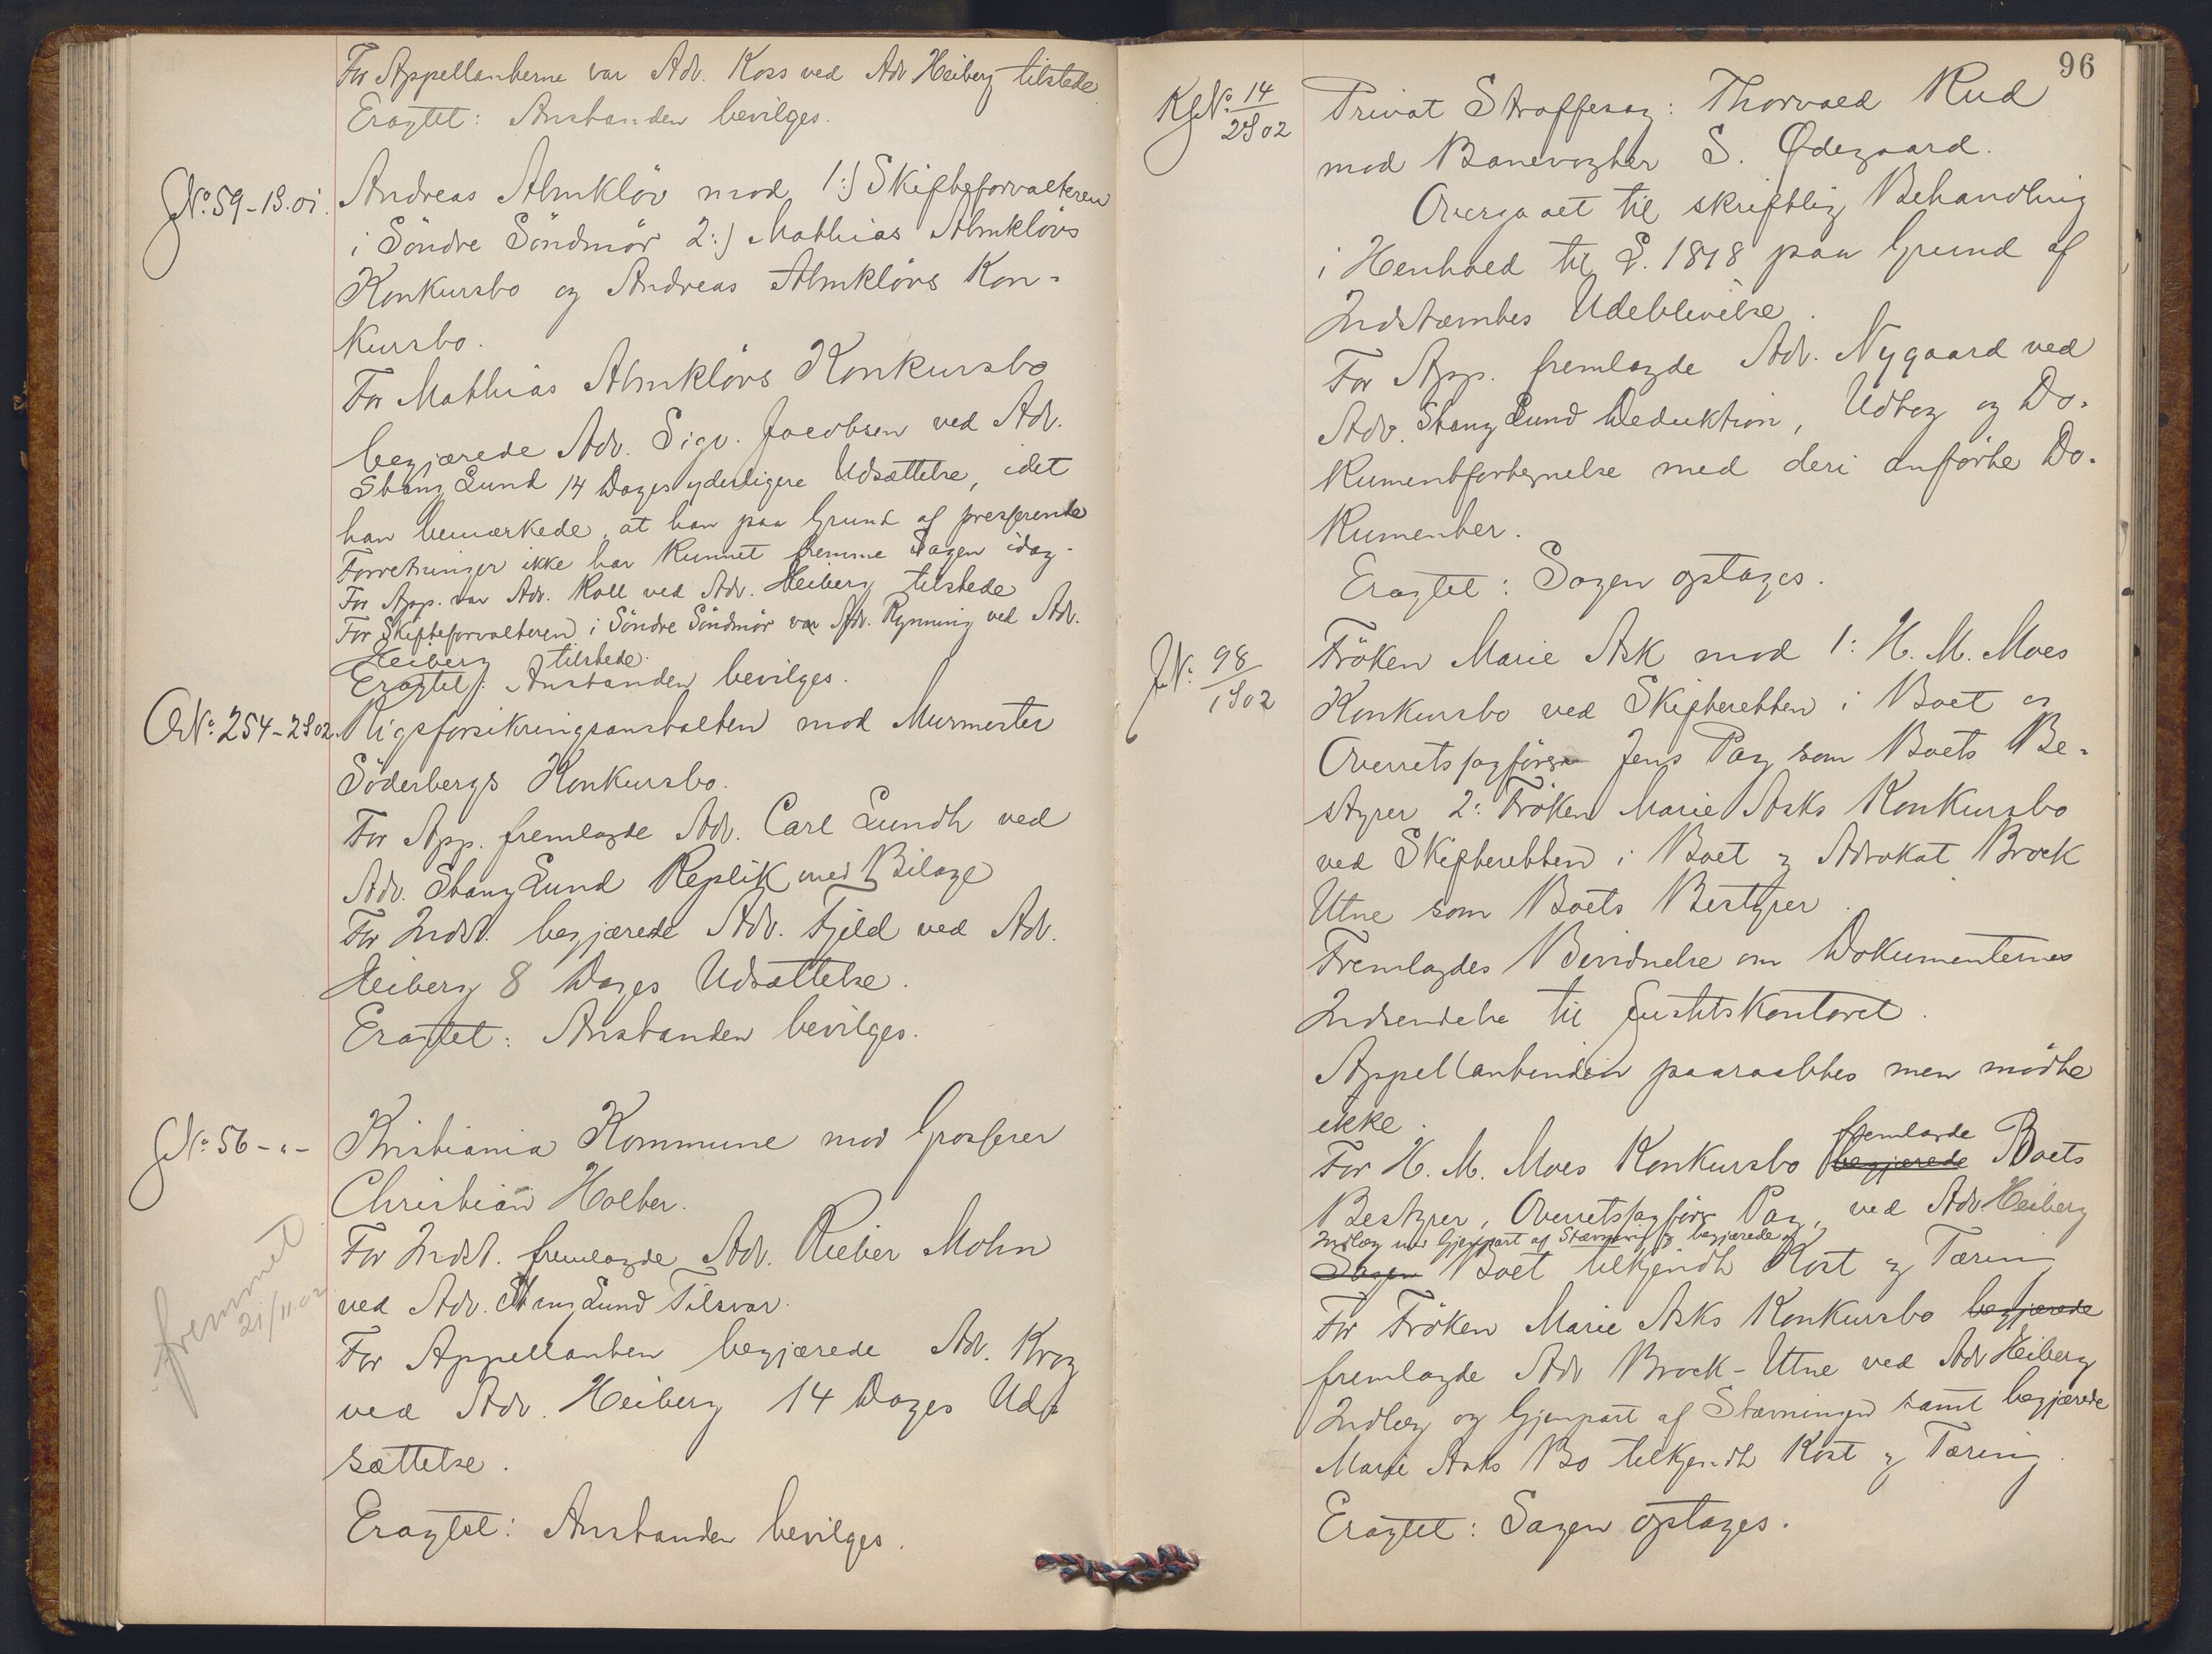 For Appellanterne var Adv. Koss ved Adv Heiberg tilstede
Eragtet: Anstanden bevilges.
JNo. 59-1S.01.
Andreas Almkløv mod 1:) Skifteforvalteren
i Söndre Söndmör 2:) Mathias Almklövs
Konkursbo og Andreas Almklövs Kon-
kursbo.
For Mathias Almklövs Konkursbo
begjærede Adv. Sigv. Jacobsen ved Adv.
Stang Lund 14 Dages yderligere Udsættelse, idet
han bemærkede, at han paa Grund af presserende
Forretninger ikke har kunnet fremme Sagen idag.
For App. var Adv. Roll ved Adv. Heiberg tilstede
For Skifteforvalteren i Söndre Söndmör var Adv. Rynning ved Adv.
Heiberg tilstede.
Eragtet: Anstanden bevilges.
ONo. 254-2S02.
Rigsforsikringsanstalten mod Murmester
Söderbergs Konkursbo.
For App. fremlagde Adv. Carl Lundh ved
Adv. Stang Lund Replik med Bilage
For Indst. begjærede Adv. Fjeld ved Adv.
Heiberg 8 Dages Udsættelse.
Eragtet: Anstanden bevilges.
JNo. 56-"-
Kristiania Kommune mod Grosserer
Christian Holter.
For Indst. fremlagde Adv. Rieber Mohn
ved Adv. Stang Lund Tilsvar.
fremmet
21/11.02
For Appellanten begjærede Adv. Krog
ved Adv. Heiberg 14 Dages Ud-
sættelse.
Eragtet: Anstanden bevilges.
96
KJNo. 14/2S02
Privat Straffesag: Thorvald Rud
mod Banevogter S. Ödegaard.
Overgaaet til skriftlig Behandling
i Henhold til L. 1818 paa Grund af
Indstævntes Udeblivelse.
For App. fremlagde Adv. Nygaard ved
Adv. Stang Lund Deduktion, Udtog og Do-
kumentfortegnelse med deri anförte Do-
kumenter.
Eragtet: Sagen optages.
JNo. 98/1S02
Fröken Marie Ask mod 1: H. M. Moes
Konkursbo ved Skifteretten i Boet og
Overretssagförer Jens Pay som Boets Be-
styrer 2: Fröken Marie Asks Konkursbo
ved Skifteretten i Boet og Advokat Brock
Utne som Boets Bestyrer.
Fremlagdes Bevidnelse om Dokumenternes
Indsendelse til Justitskontoret.
Appellantinden paaraabtes men mödte
ikke.
For H. M. Moes Konkursbo begjærede fremlagde Boets
Bestyrer, Overretssagförer Pay, ved Adv Heiberg
Indlæg med Gjenpart af Stævning og begjærede
Sagen Boet tilkjendt Kost og Tæring
For Fröken Marie Asks Konkursbo begjærede
fremlagde Adv Brock-Utne ved Adv Heiberg
Indlæg og Gjenpart af Stævningen samt begjærede
Marie Asks Bo tilkjendt Kost og Tæring.
Eragtet: Sagen optages.